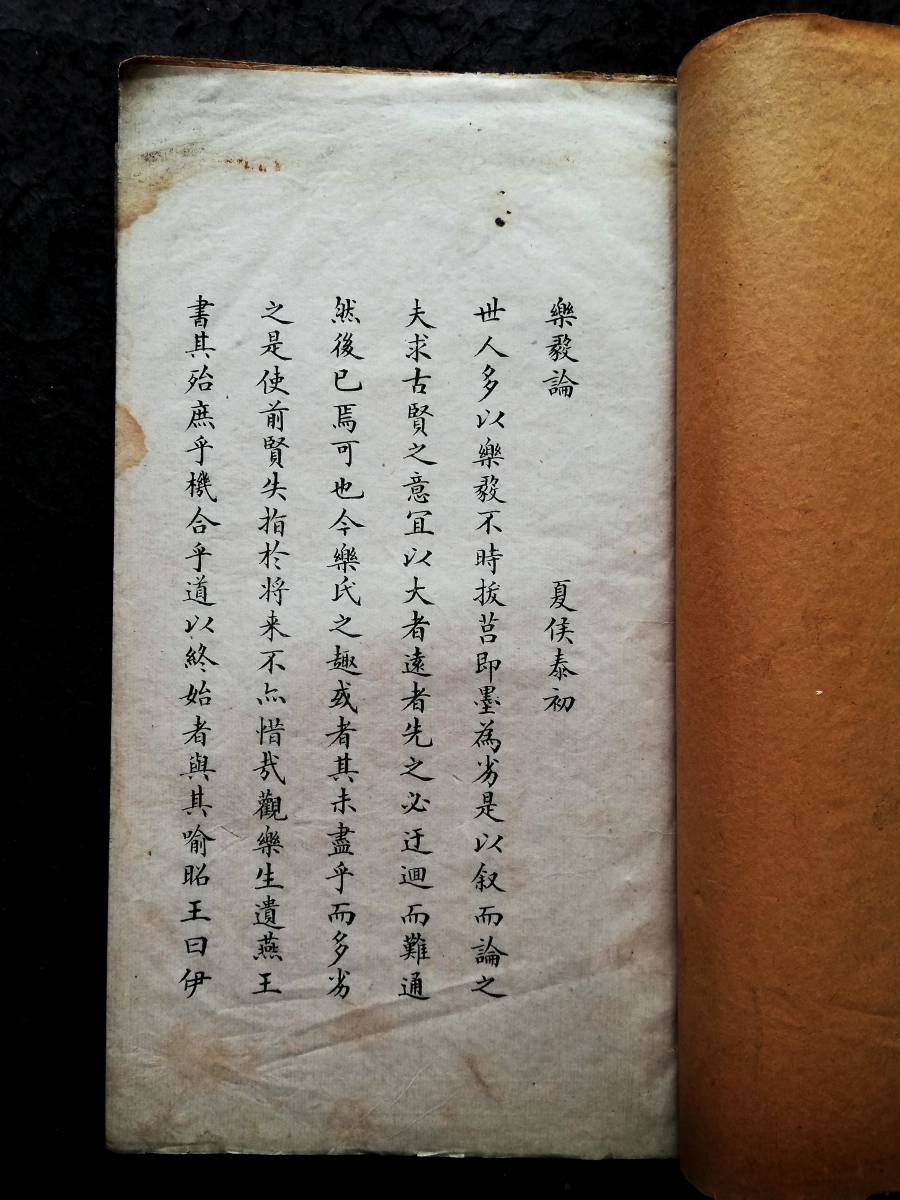 樂毅論 夏侯泰初
世人多以樂毅不時拔莒即墨為劣是以叙而論之
夫求古賢之意宜以大者遠者先之必迂迴而難通
然後已焉可也今樂氏之趣或者其未盡乎而多劣
之是使前賢失指於将来不亦惜哉觀樂生遺燕王
書其殆庶乎機合乎道以終始者與其喻昭王曰伊